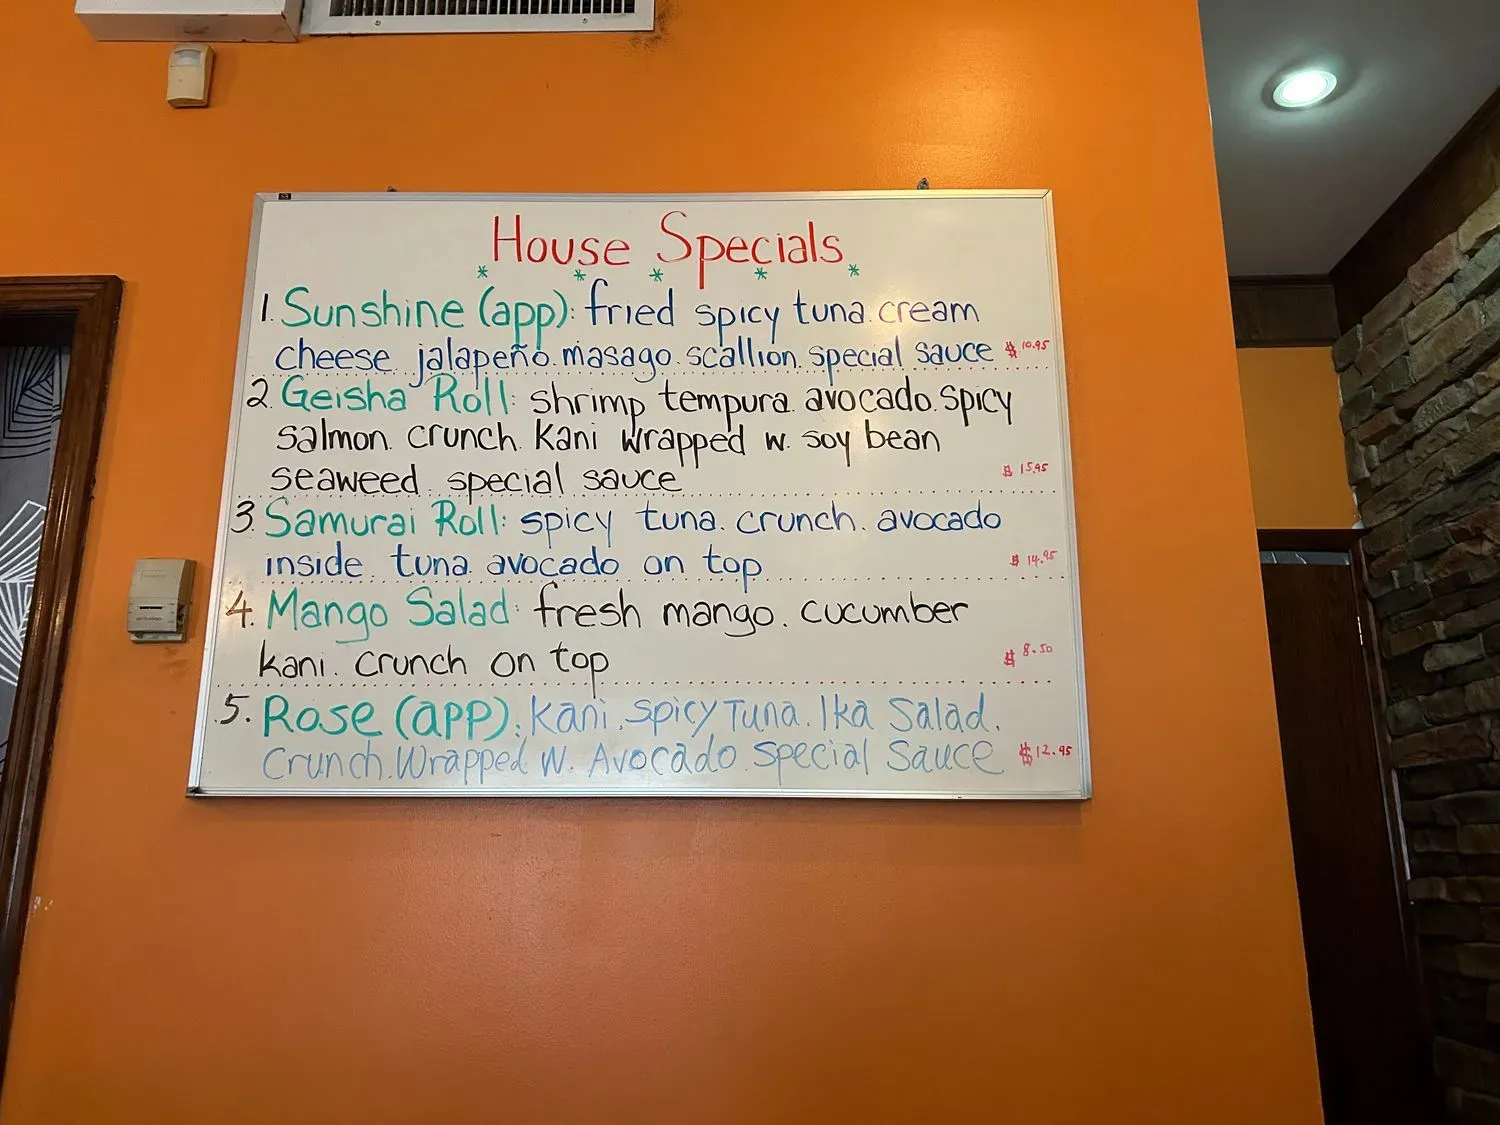 House Specials
* * * * *
1. Sunshine (app): fried spicy tuna. cream
cheese jalapeño. masago. scallion. special sauce $10.95
2. Geisha Roll: shrimp tempura. avocado. spicy
salmon. crunch. kani wrapped w. soy bean
seaweed special sauce $15.95
3. Samurai Roll: spicy tuna. crunch. avocado
inside. tuna avocado on top $14.95
4. Mango Salad: fresh mango. cucumber
kani. crunch on top $8.50
5. Rose (APP): Kani. Spicy Tuna. Ika Salad.
Crunch. Wrapped W. Avocado Special Sauce $12.95